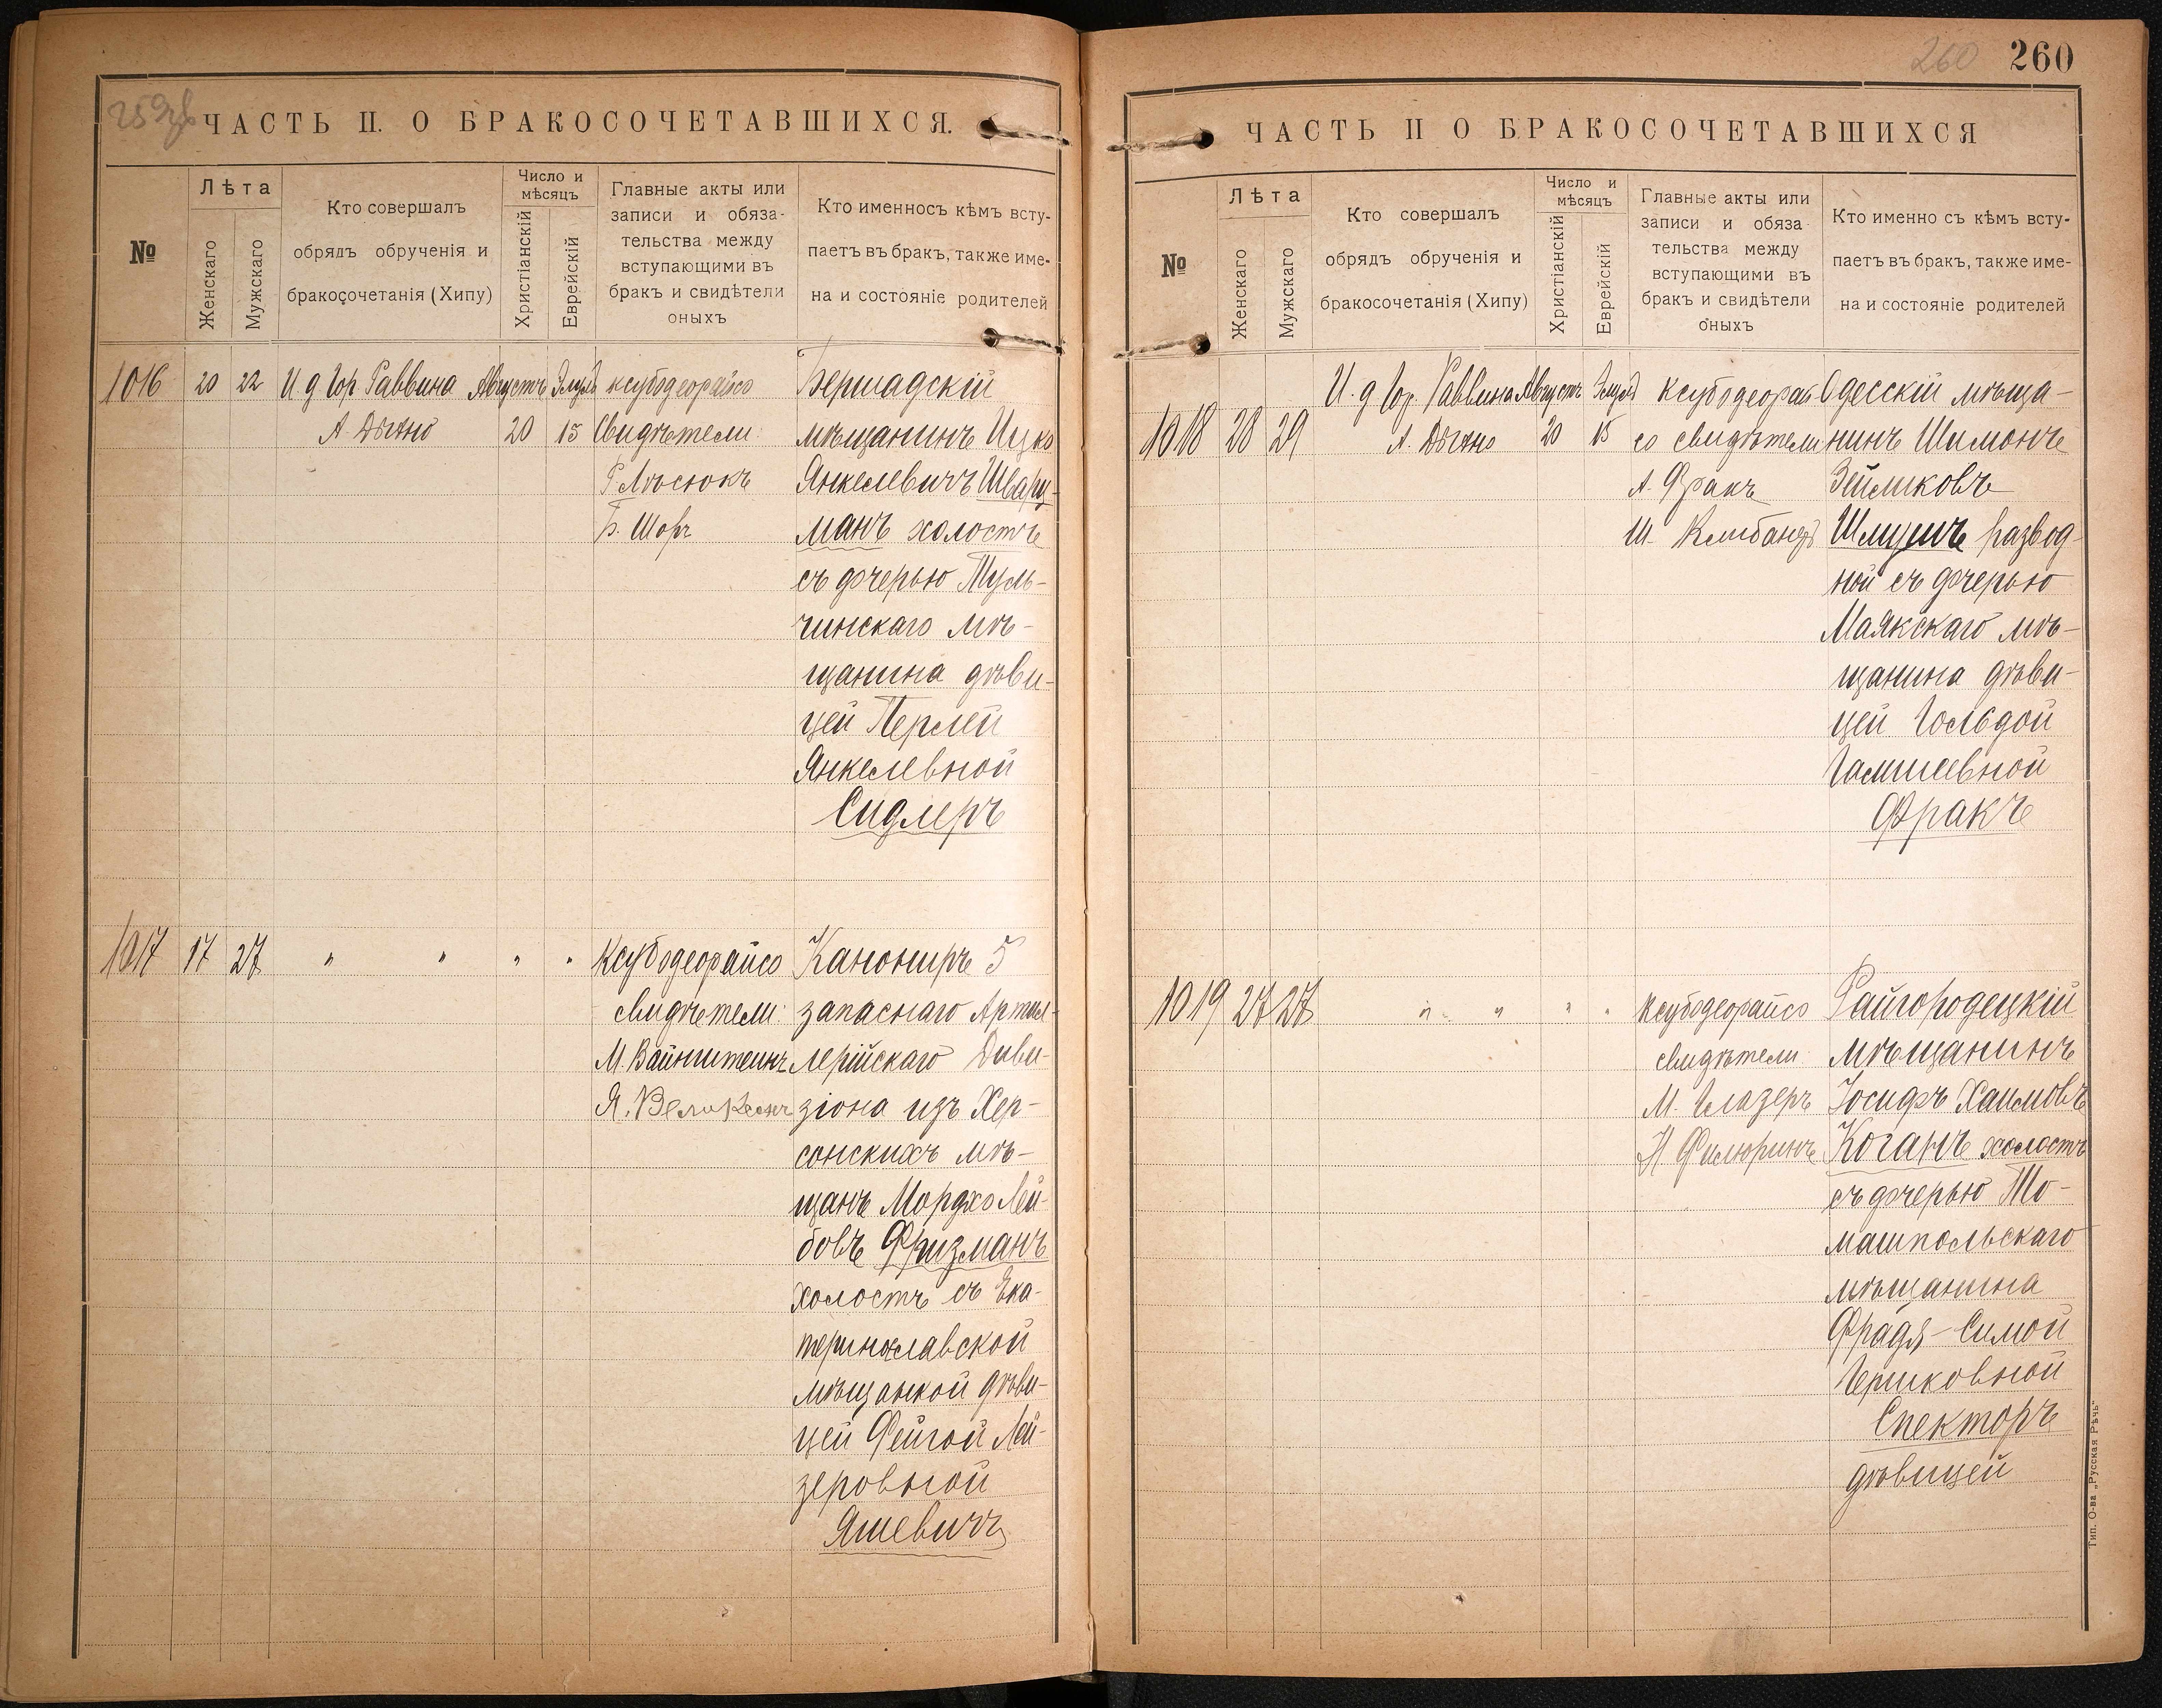 259об
ЧАСТЬ II. О БРАКОСОЧЕТАВШИХСЯ.
№
Лѣта
Женскаго
Мужскаго
Кто совершалъ
обрядъ обрученія и
бракосочетанія (Хипу)
Число и
мѣсяцъ
Христіанскій
Еврейскій
Главные акты или
записи и обяза-
тельства между
вступающими въ
бракъ и свидѣтели
оныхъ
Кто именносъ кѣмъ всту-
паетъ въ бракъ, также име-
на и состояніе родителей
1016 20 22 И. д Гор. Раввина Августъ Элулъ ксубодеорайсо Бершадскій
А. 20 15 Свидѣтели: мѣщанинъ Ицко
Г. Лѣсюкъ Янкелевичъ Шварц-
Б. Шоръ манъ холостъ
съ дочерью Туль-
чинскаго мѣ-
щанина дѣви-
цей Перлей
Янкелевной
Сидлеръ
1017 17 27 " " " " Ксубодеорайсо Канониръ 5
свидѣтели: запаснаго Артил-
М. Вайнштейнъ лерійскаго Диви-
Я. зіона изъ Хер-
сонскихъ мѣ-
щанъ Мордко Лей-
бовъ Фризманъ
холостъ съ Ека-
теринославской
мѣщанкой дѣви-
цей Фейгой Лей-
зеровной
Яшевичъ
260 260
ЧАСТЬ II О БРАКОСОЧЕТАВШИХСЯ
№
Лѣта
Женскаго
Мужскаго
Кто совершалъ
обрядъ обрученія и
бракосочетанія (Хипу)
Число и
мѣсяцъ
Христіанскій
Еврейскій
Главные акты или
записи и обяза
тельства между
вступающими въ
бракъ и свидѣтели
оныхъ
Кто именно съ кѣмъ всту-
паетъ въ бракъ, также име-
на и состояніе родителей
И. д Гор. Раввина Августъ Элулъ ксубодеорай Одесскій мѣща-
1018 28 29 А. 20 15 со свидѣтели нинъ Шимонъ
А. Фракъ Зейликовъ
Ш. Клибанъ развод-
ной съ дочерью
Маякскаго мѣ-
щанина дѣви-
цей Гольдой
Фракъ
1019 27 27 " " " " Ксубодеорайсо Райгородецкій
свидѣтели: мѣщанинъ
М. Глазеръ Іосифъ Хаимовъ
Н Филюринъ Коганъ холостъ
съ дочерью То-
машпольскаго
мѣщанина
Фрадя-Симой
Гершковной
Спекторъ
дѣвицей
Тип. О-ва „Русская Рѣчь"